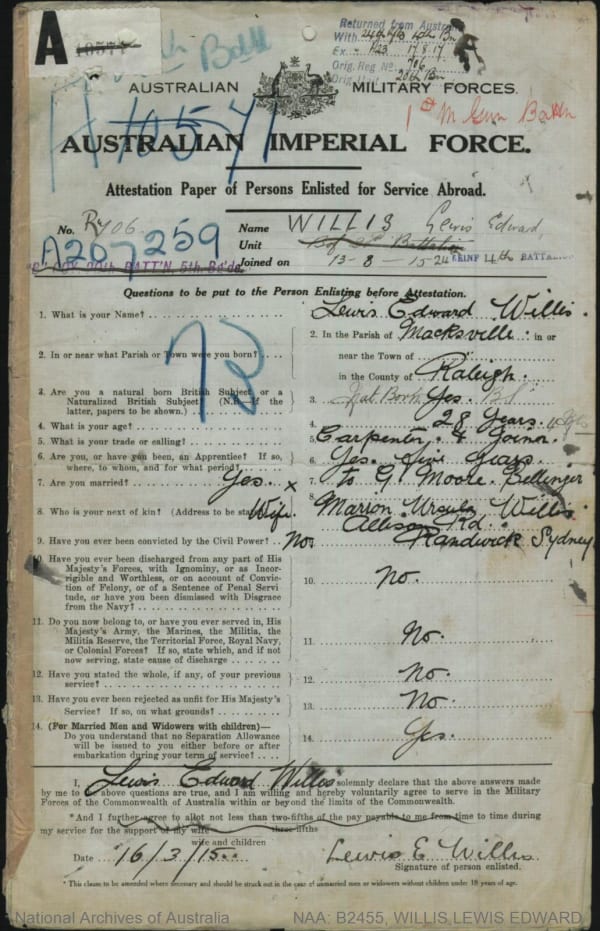 A
Returned from Austra
With 4th Bn
Ex. A23 17.8.17
Orig. Reg No. 706
Orig. Unit 20th Bn
AUSTRALIAN MILITARY FORCES.
1st M Gun Battn
AUSTRALIAN IMPERIAL FORCE.
Attestation Paper of Persons Enlisted for Service Abroad.
No. 706. Name WILLIS Lewis Edward,
A267259 Unit
20TH BATT'N 5th Bde. Joined on 13-8-15 REINF 4th BATTALION
Questions to be put to the Person Enlisting before Attestation.
1. What is your Name? Lewis Edward Willis.
2. In or near what Parish or Town were you born? 2. In the Parish of Macksville in or
near the Town of
in the County of Raleigh.
3. Are you a natural born British Subject or a
Naturalized British Subject? (N.B.—If the
latter, papers to be shown.) 3. Nat. Born Yes.
4. What is your age? 4. 28 Years.
5. What is your trade or calling? 5. Carpenter & Joiner.
6. Are you, or have you been, an Apprentice? If so,
where, to whom, and for what period? 6. Yes. Five Years.
7. Are you married? Yes. x 7. to G. Moore. Bellinger
8. Who is your next of kin? (Address to be stated) Wife. 8. Marion Ursula Willis.
Allison Rd.
9. Have you ever been convicted by the Civil Power? No. Randwick Sydney
10. Have you ever been discharged from any part of His
Majesty's Forces, with Ignominy, or as Incor-
rigible and Worthless, or on account of Convic-
tion of Felony, or of a Sentence of Penal Servi-
tude, or have you been dismissed with Disgrace
from the Navy? 10. No.
11. Do you now belong to, or have you ever served in, His
Majesty's Army, the Marines, the Militia, the
Militia Reserve, the Territorial Force, Royal Navy,
or Colonial Forces? If so, state which, and if not
now serving, state cause of discharge 11. No.
12. Have you stated the whole, if any, of your previous
service? 12. No.
13. Have you ever been rejected as unfit for His Majesty's
Service? If so, on what grounds? 13. No.
14. (For Married Men and Widowers with children)—
Do you understand that no Separation Allowance
will be issued to you either before or after
embarkation during your term of service? 14. Yes.
I, Lewis Edward Willis solemnly declare that the above answers made
by me to above questions are true, and I am willing and hereby voluntarily agree to serve in the Military
Forces of the Commonwealth of Australia within or beyond the limits of the Commonwealth.
*And I further agree to allot not less than two-fifths of the pay payable to me from time to time during
three-fifths
my service for the support of my wife
wife and children
Date 16/3/15. Lewis E. Willis
Signature of person enlisted.
* This clause to be amended where necessary and should be struck out in the case of unmarried men or widowers without children under 18 years of age.
National Archives of Australia NAA: B2455, WILLIS LEWIS EDWARD